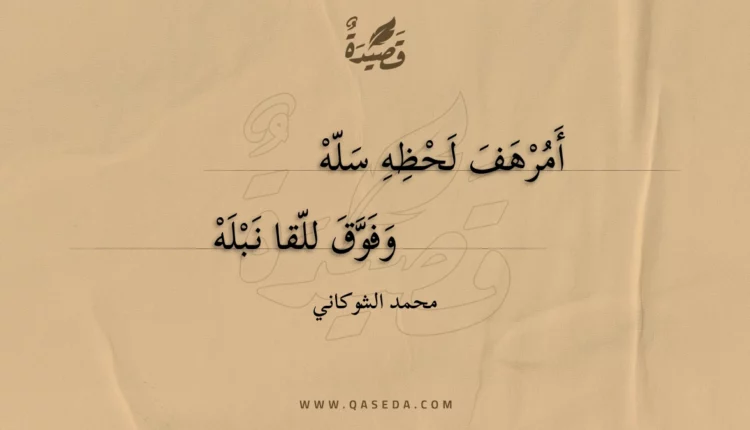 قَصِيْدَةٌ
أَمُرْهَفَ لَحْظِهِ سَلّهْ
وَفَوَّقَ للّقا نَبْلَهْ
محمد الشوكاني
WWW.QASEDA.COM